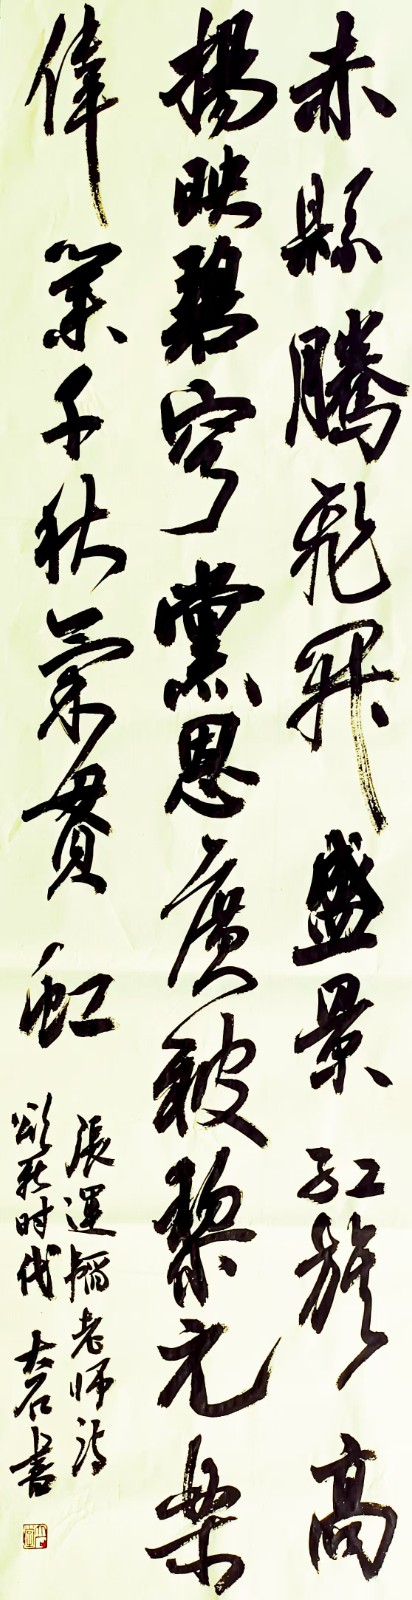 赤縣騰飛開盛景紅旗高
揚映碧穹黨恩廣被黎元樂
偉業千秋氣貫虹
張運韜老師詩
頌新时代 大石書